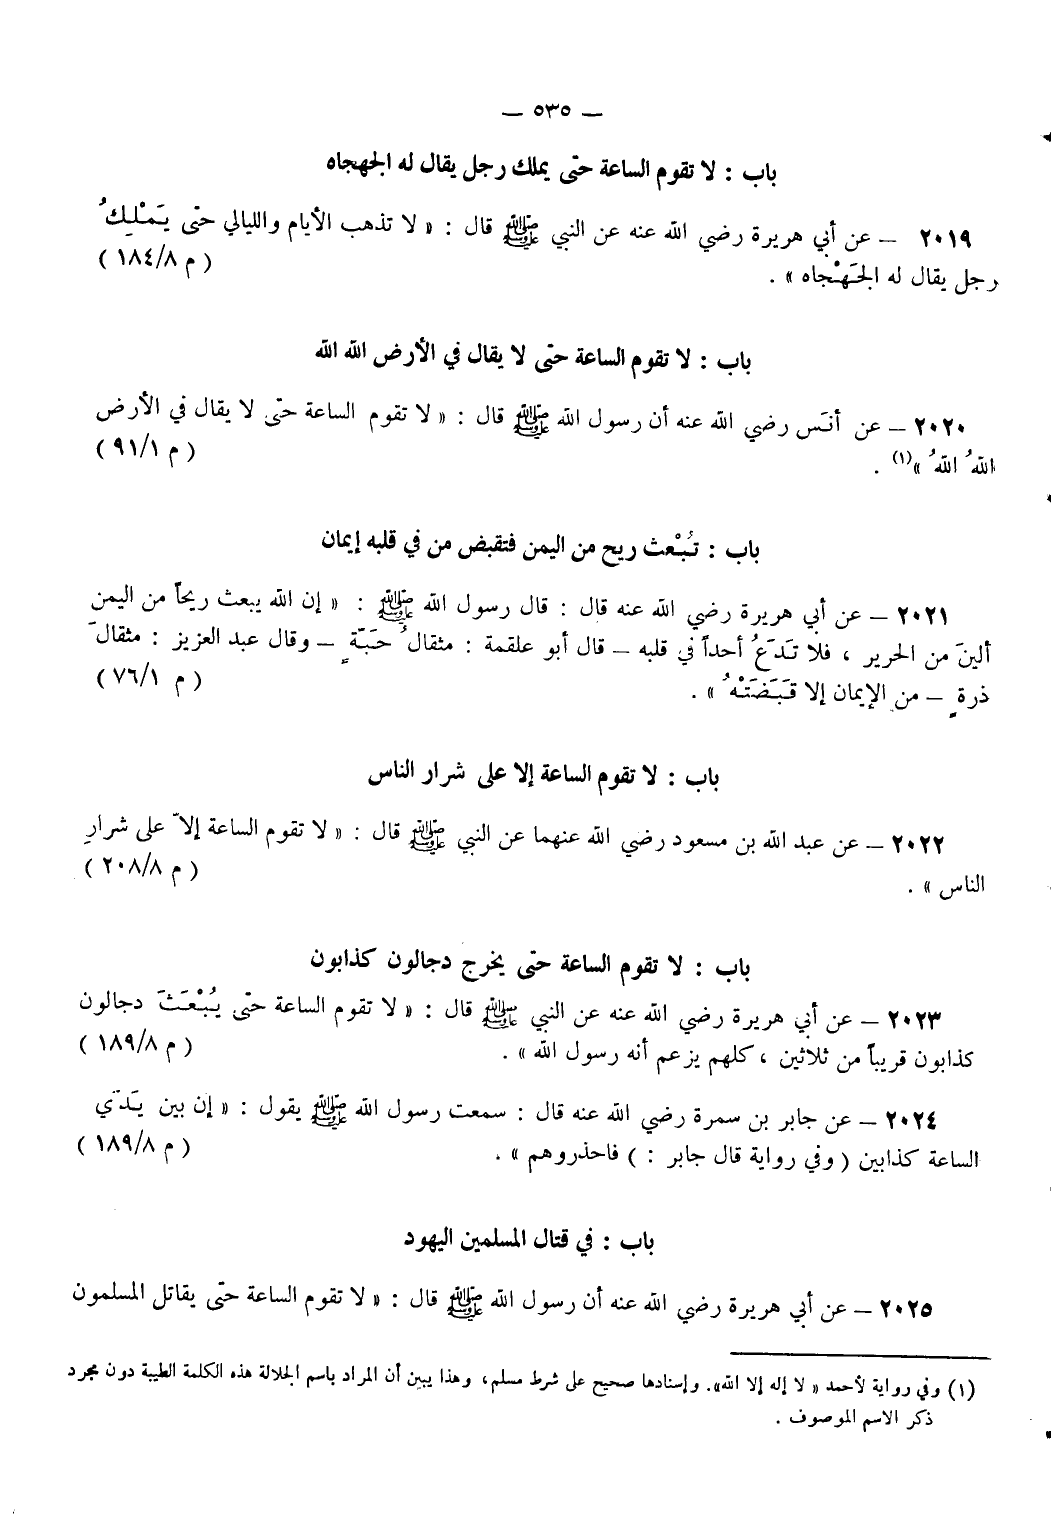 — ٥٣٥ —
باب : لا تقوم الساعة حتى يملك رجل يقال له الجهجاه
٢٠١٩ — عن أبي هريرة رضي الله عنه عن النبي ﷺ قال : « لا تذهب الأيام والليالي حتى يَمْلِكُ
رجل يقال له الجَهْجاه » . ( م ١٨٤/٨ )
باب : لا تقوم الساعة حتى لا يقال في الأرض الله الله
٢٠٢٠ — عن أنَس رضي الله عنه أن رسول الله ﷺ قال : « لا تقوم الساعة حتى لا يقال في الأرض
اللهُ اللهُ »(١) . ( م ٩١/١ )
باب : تُبْعث ريح من اليمن فتقبض من في قلبه إيمان
٢٠٢١ — عن أبي هريرة رضي الله عنه قال : قال رسول الله ﷺ : « إن الله يبعث ريحاً من اليمن
ألينَ من الحرير ، فلا تَدَعُ أحداً في قلبه — قال أبو علقمة : مثقالُ حَبّةٍ — وقال عبد العزيز : مثقالَ
ذرةٍ — من الإيمان إلا قَبَضَتْهُ » . ( م ٧٦/١ )
باب : لا تقوم الساعة إلا على شرار الناس
٢٠٢٢ — عن عبد الله بن مسعود رضي الله عنهما عن النبي ﷺ قال : « لا تقوم الساعة إلاّ على شرارِ
الناس » . ( م ٢٠٨/٨ )
باب : لا تقوم الساعة حتى يخرج دجالون كذابون
٢٠٢٣ — عن أبي هريرة رضي الله عنه عن النبي ﷺ قال : « لا تقوم الساعة حتى يُبْعَثَ دجالون
كذابون قريباً من ثلاثين ، كلهم يزعم أنه رسول الله » . ( م ١٨٩/٨ )
٢٠٢٤ — عن جابر بن سمرة رضي الله عنه قال : سمعت رسول الله ﷺ يقول : « إن بين يَدَي
الساعة كذابين ( وفي رواية قال جابر : ) فاحذروهم » . ( م ١٨٩/٨ )
باب : في قتال المسلمين اليهود
٢٠٢٥ — عن أبي هريرة رضي الله عنه أن رسول الله ﷺ قال : « لا تقوم الساعة حتى يقاتل المسلمون
(١) وفي رواية لأحمد « لا إله إلا الله». وإسنادها صحيح على شرط مسلم، وهذا يبين أن المراد باسم الجلالة هذه الكلمة الطيبة دون مجرد
ذكر الاسم الموصوف .